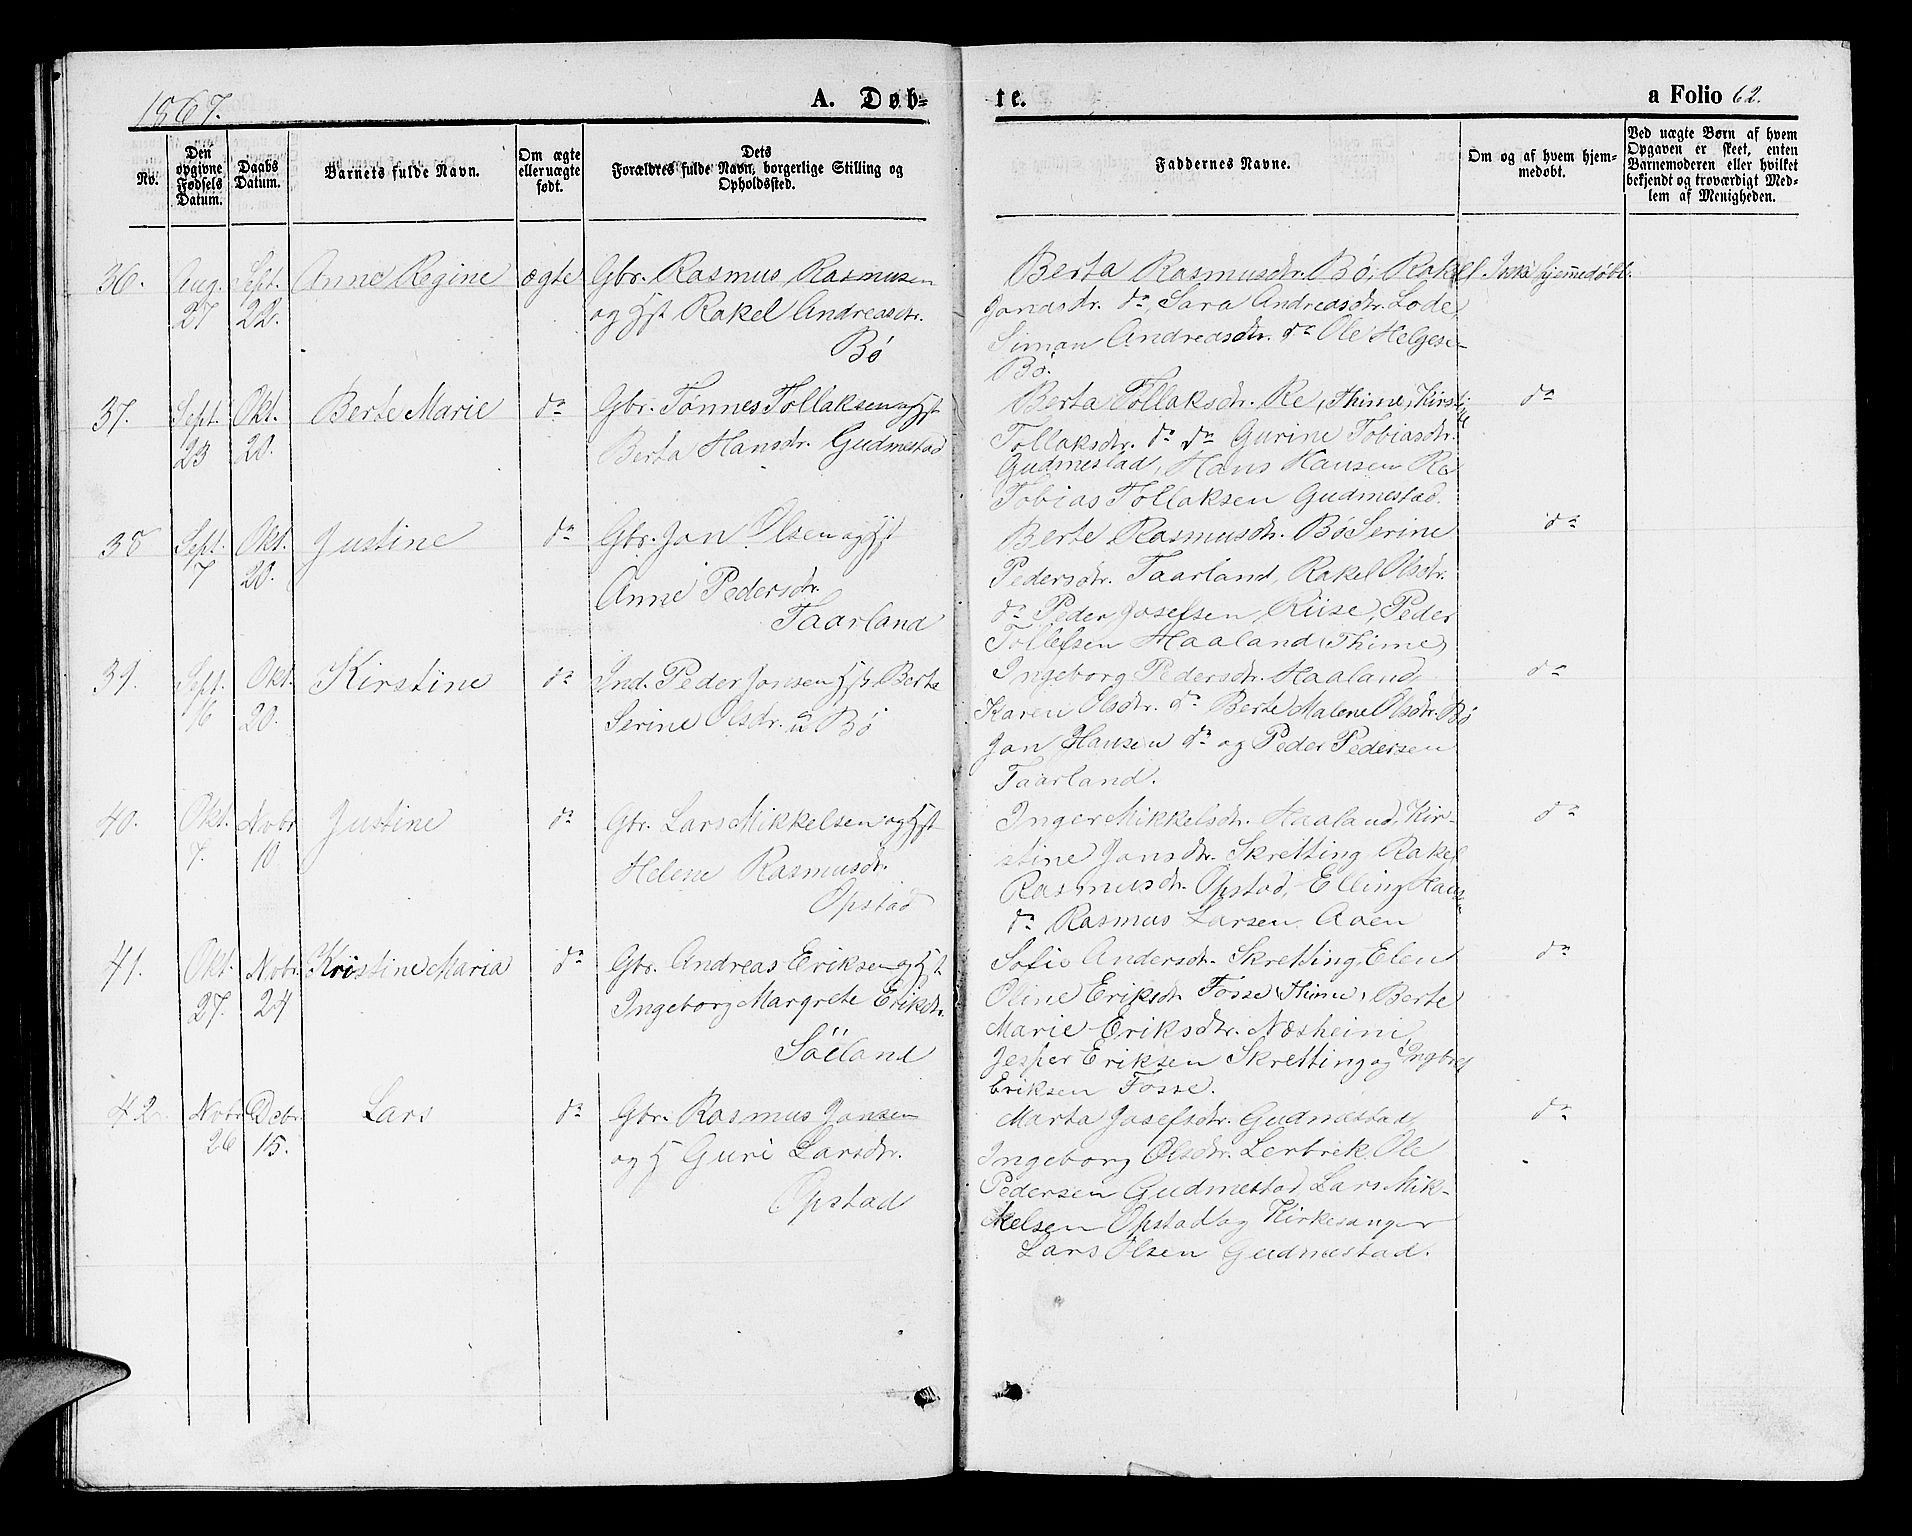 1867.
A. Døb-
te.
a Folio 62.
No.
Den opgivne Fødsels Datum.
Daabs Datum.
Barnets fulde Navn.
Om ægte eller uægte født.
Dets Forældres fulde Navn, borgerlige Stilling og Opholdssted.
Faddernes Navne.
Om og af hvem hjem-
medøbt.
Ved uægte Børn af hvem
Opgaven er skeet, enten
Barnemoderen eller hvilket
bekjendt og troværdigt Med-
lem af Menigheden.
36. Aug. 27 Sept. 22. Anne Regine ægte Gbr. Rasmus Rasmusen
og Hst Rakel Andreasdtr.
Bø
Berta Rasmusdtr. Bø, Rakel
Jonasdtr. do, Sara Andreasdtr. Lode,
Siman Andreasdtr. do Ole Helgese-
Bø.
Ikke hjemmedøbt.
37. Sept. 23 Okt. 20. Berte Marie do Gbr. Tønnes Tollaksen og Hst
Berta Hansdtr. Gudmestad
Berta Tollaksdtr. Re, Thime, Kirstine
Tollaksdtr. do do Gurine Tobiasdtr.
Gudmestad, Hans Hansen Re
Tobias Tollaksen Gudmestad.
do
38 Sept. 7 Okt. 20. Justine do Gbr. Jon Olsen og Hst
Anne Pedersdtr.
Taarland
Berte Rasmusdtr. Bø Serine
Pedersdtr. Taarland, Rakel Olsdtr.
do Peder Josefsen, Riise, Peder
Tollefsen Haaland (Thime)
do
39. Sept. 16 Okt. 20. Kirstine do Ind. Peder Jonsen Hst. Berte
Serine Olsdtr. Bø
Ingeborg Pedersdtr. Haaland,
Karen Olsdtr. do Berte Malene Olsdtr. Bø
Jon Hansen do og Peder Pedersen
Taarland.
do
40. Okt. 7. Nobr 10 Justine do Gbr. Lars Mikkelsen og Hst
Helene Rasmusdtr.
Opstad
Inger Mikkelsdtr. Haaland, Kir-
stine Jonsdtr. Skretting, Rakel
Rasmusdtr. Opstad, Elling Hansen
do Rasmus Larsen Aaen
do
41. Okt. 27. Nobr. 24 Kristine Maria do Gbr. Andreas Eriksen og Hst
Ingeborg Margrete Eriksdtr.
Söiland
Sofie Andersdtr. Skretting, Elen
Oline Eriksdtr Fosse (Thime) Berte
Marie Eriksdtr. Næsheim,
Jesper Eriksen Skretting og Ingbret
Eriksen Fosse.
do
42 Nobr 26 Debr. 15. Lars do Gbr. Rasmus Jonsen
og H Guri Larsdtr.
Opstad
Marta Josefsdtr. Gudmestad,
Ingeborg Olsdtr. Lerbrek, Ole
Pedersen Gudmestad, Lars Mik-
kelsen Opstad og Kirkesanger
Lars Olsen Gudmestad.
do